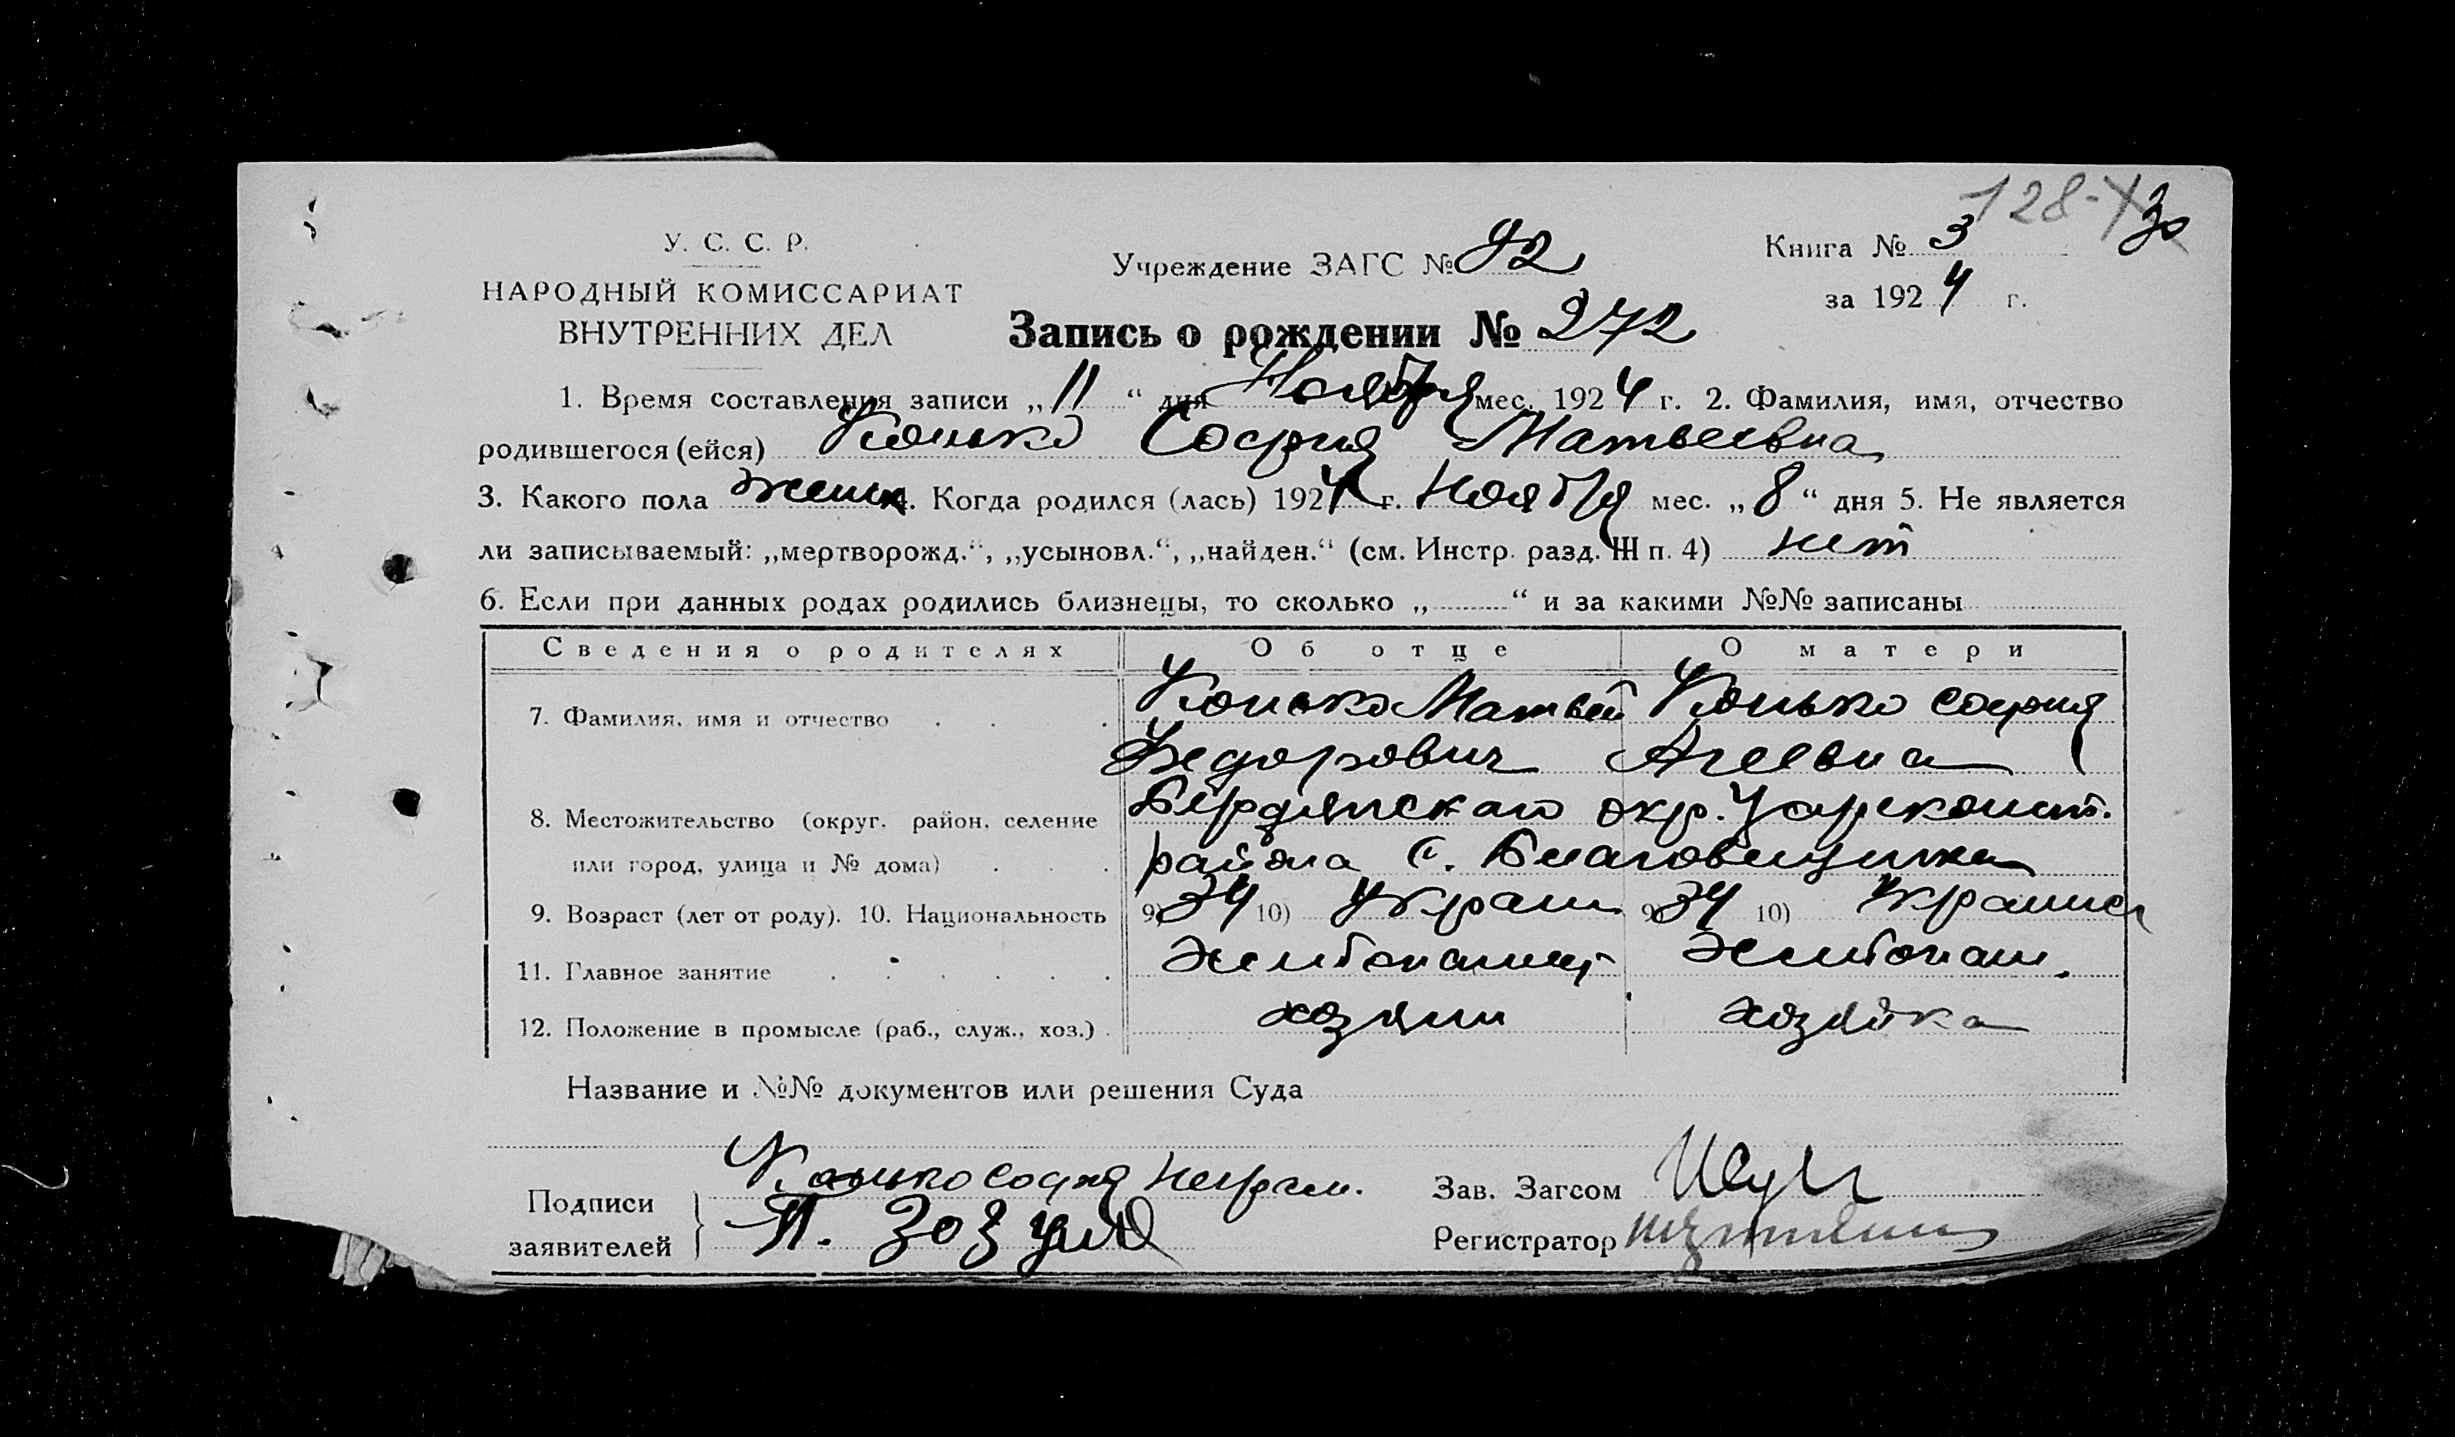 128-
30
У. С. С. Р.
НАРОДНЫЙ КОМИССАРИАТ
ВНУТРЕННИХ ДЕЛ
Учреждение ЗАГС № 92
Книга № 3
за 1924 г.
Запись о рождении № 272
1. Время составления записи „11“ дня Ноября мес. 1924 г. 2. Фамилия, имя, отчество
родившегося (ейся) Конько София Матвеевна
3. Какого пола женск 4. Когда родился (лась) 1924 г. Ноября мес. „8“ дня 5. Не является
ли записываемый: „мертворожд.“, „усыновл.“, „найден.“ (см. Инстр. разд. III п. 4) нет
6. Если при данных родах родились близнецы, то сколько „ “ и за какими №№ записаны
Сведения о родителях Об отце О матери
7. Фамилия, имя и отчество Конько Матвей Конько София
Федорович Агеевна
8. Местожительство (округ. район, селение Бердянскаго окр. Цареконст.
или город, улица и № дома) района С. Благовещенка
9. Возраст (лет от роду). 10. Национальность 9) 34 10) Украин. 9) 34 10) Украинка
11. Главное занятие Хлебопашец Хлебопаш.
12. Положение в промысле (раб., служ., хоз.) хозяин хозяйка
Название и №№ документов или решения Суда
Подписи
заявителей
Конько София неграм.
П. Зозуля
Зав. Загсом
Регистратор